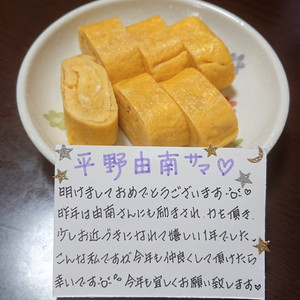 平野由南サマ♡
明けましておめでとうございます
昨年は由南さんにも励まされ、力を頂き、
少しお近づきになれて嬉しい1年でした。
こんな私ですが今年も仲良くして頂けたら
幸いです 今年も宜しくお願い致します